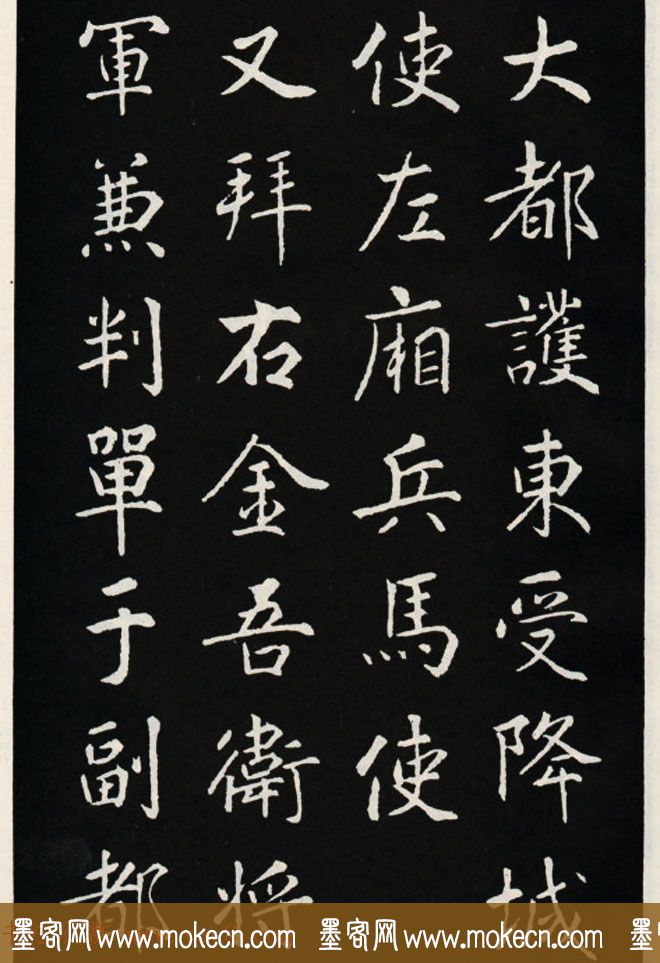 大都護東受降城
使左廂兵馬使
又拜右金吾衛將
軍兼判單于副都
墨客网 www.mokecn.com 墨客网 www.mokecn.com 墨